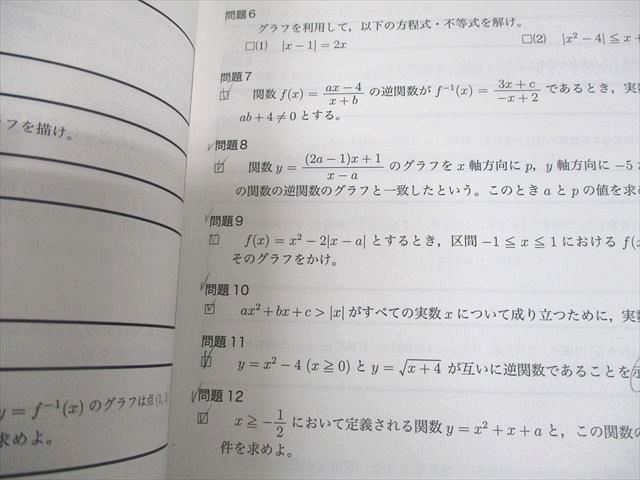 フを描け。
y = f⁻¹(x) のグラフは点(1,
求めよ。
問題6
グラフを利用して，以下の方程式・不等式を解け。
□(1) |x − 1| = 2x □(2) |x² − 4| ≦ x +
問題7
関数 f(x) = (ax − 4)/(x + b) の逆関数が f⁻¹(x) = (3x + c)/(−x + 2) であるとき，実数
ab + 4 ≠ 0 とする。
問題8
関数 y = ((2a − 1)x + 1)/(x − a) のグラフを x 軸方向に p，y 軸方向に −5
の関数の逆関数のグラフと一致したという。このとき a と p の値を求
問題9
f(x) = x² − 2|x − a| とするとき，区間 −1 ≦ x ≦ 1 における f(
そのグラフをかけ。
問題10
ax² + bx + c > |x| がすべての実数 x について成り立つために，実数
問題11
y = x² − 4 (x ≧ 0) と y = √(x + 4) が互いに逆関数であることを示
問題12
x ≧ −1/2 において定義される関数 y = x² + x + a と，この関数の
件を求めよ。